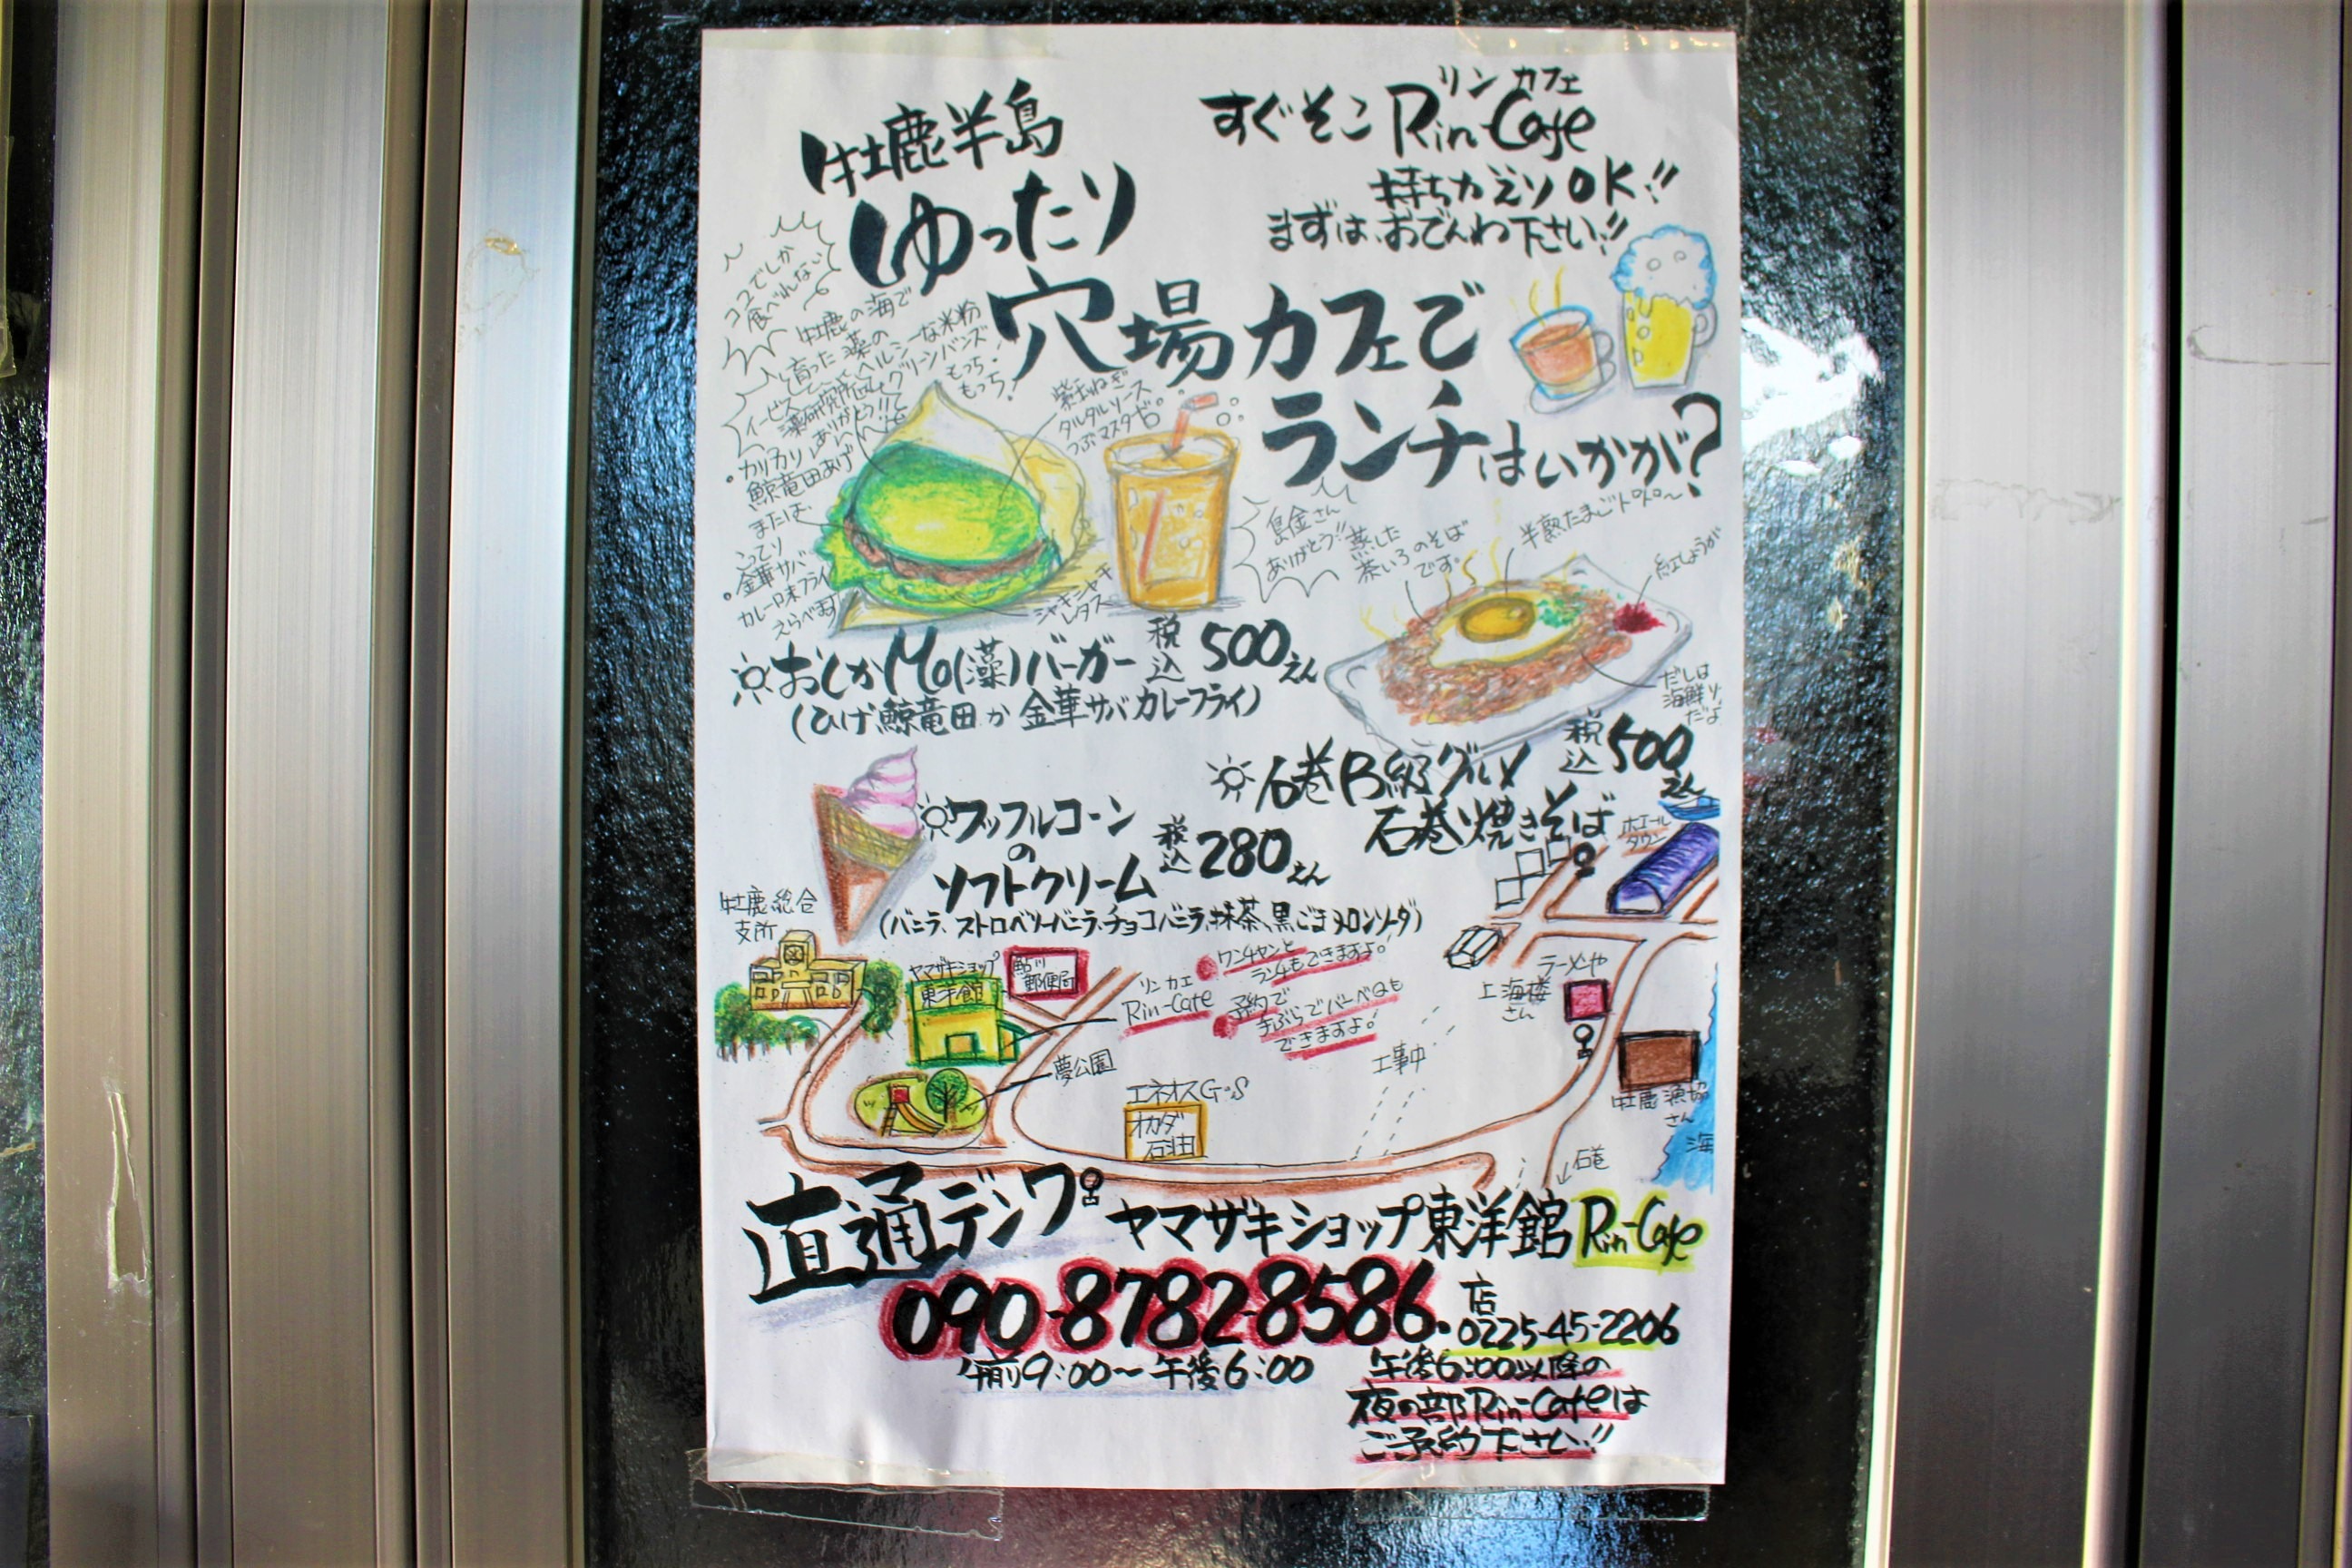 牡鹿半島
ゆったり
穴場カフェで
ランチはいかが?
すぐそこ Rin-Cafe
リン カフェ
持ちかえりOK!!
まずは、おでんわ下さい!!
ココでしか
食べれない
牡鹿の海で
育った藻の
ヘルシーな米粉
グリーンバンズ
もっち!
もっち!
イービス
藻研究所
ありがとう!!
紫玉ねぎ
タルタルソース
つぶマスタード。
・カリカリ
鯨竜田あげ
または、
こってり
・金華サバ
カレー味フライ
えらべます
シャキシャキ
レタス
島金さん
ありがとう!!
蒸した
茶いろのそば
です。
半熟たまごトロトロ〜
紅しょうが
だしは
海鮮
だよ
おしかMo(藻)バーガー 税込 500えん
(ひげ鯨竜田か 金華サバカレーフライ)
石巻B級グルメ 税込 500えん
石巻焼きそば
ワッフルコーン
の
ソフトクリーム 税込 280えん
(バニラ、ストロベリーバニラ、チョコバニラ、抹茶、黒ごま、メロンソーダ)
ホエール
タウン
牡鹿総合
支所
ヤマザキショップ
東洋館
鮎川
郵便局
リン カフェ
Rin-Cafe
ワンチャンと
ランチもできますよ!
予約で
手ぶらでバーベQも
できますよ!
ラーメンや
上海楼
さん
工事中
夢公園
エネオスG・S
オカダ
石油
牡鹿漁協
さん
海
石巻
直通デンワ
ヤマザキショップ東洋館 Rin-Cafe
090-8782-8586.
店
0225-45-2206
午前9:00〜午後6:00
午後6:00以降の
夜の部Rin-Cafeは
ご予約下さい!!